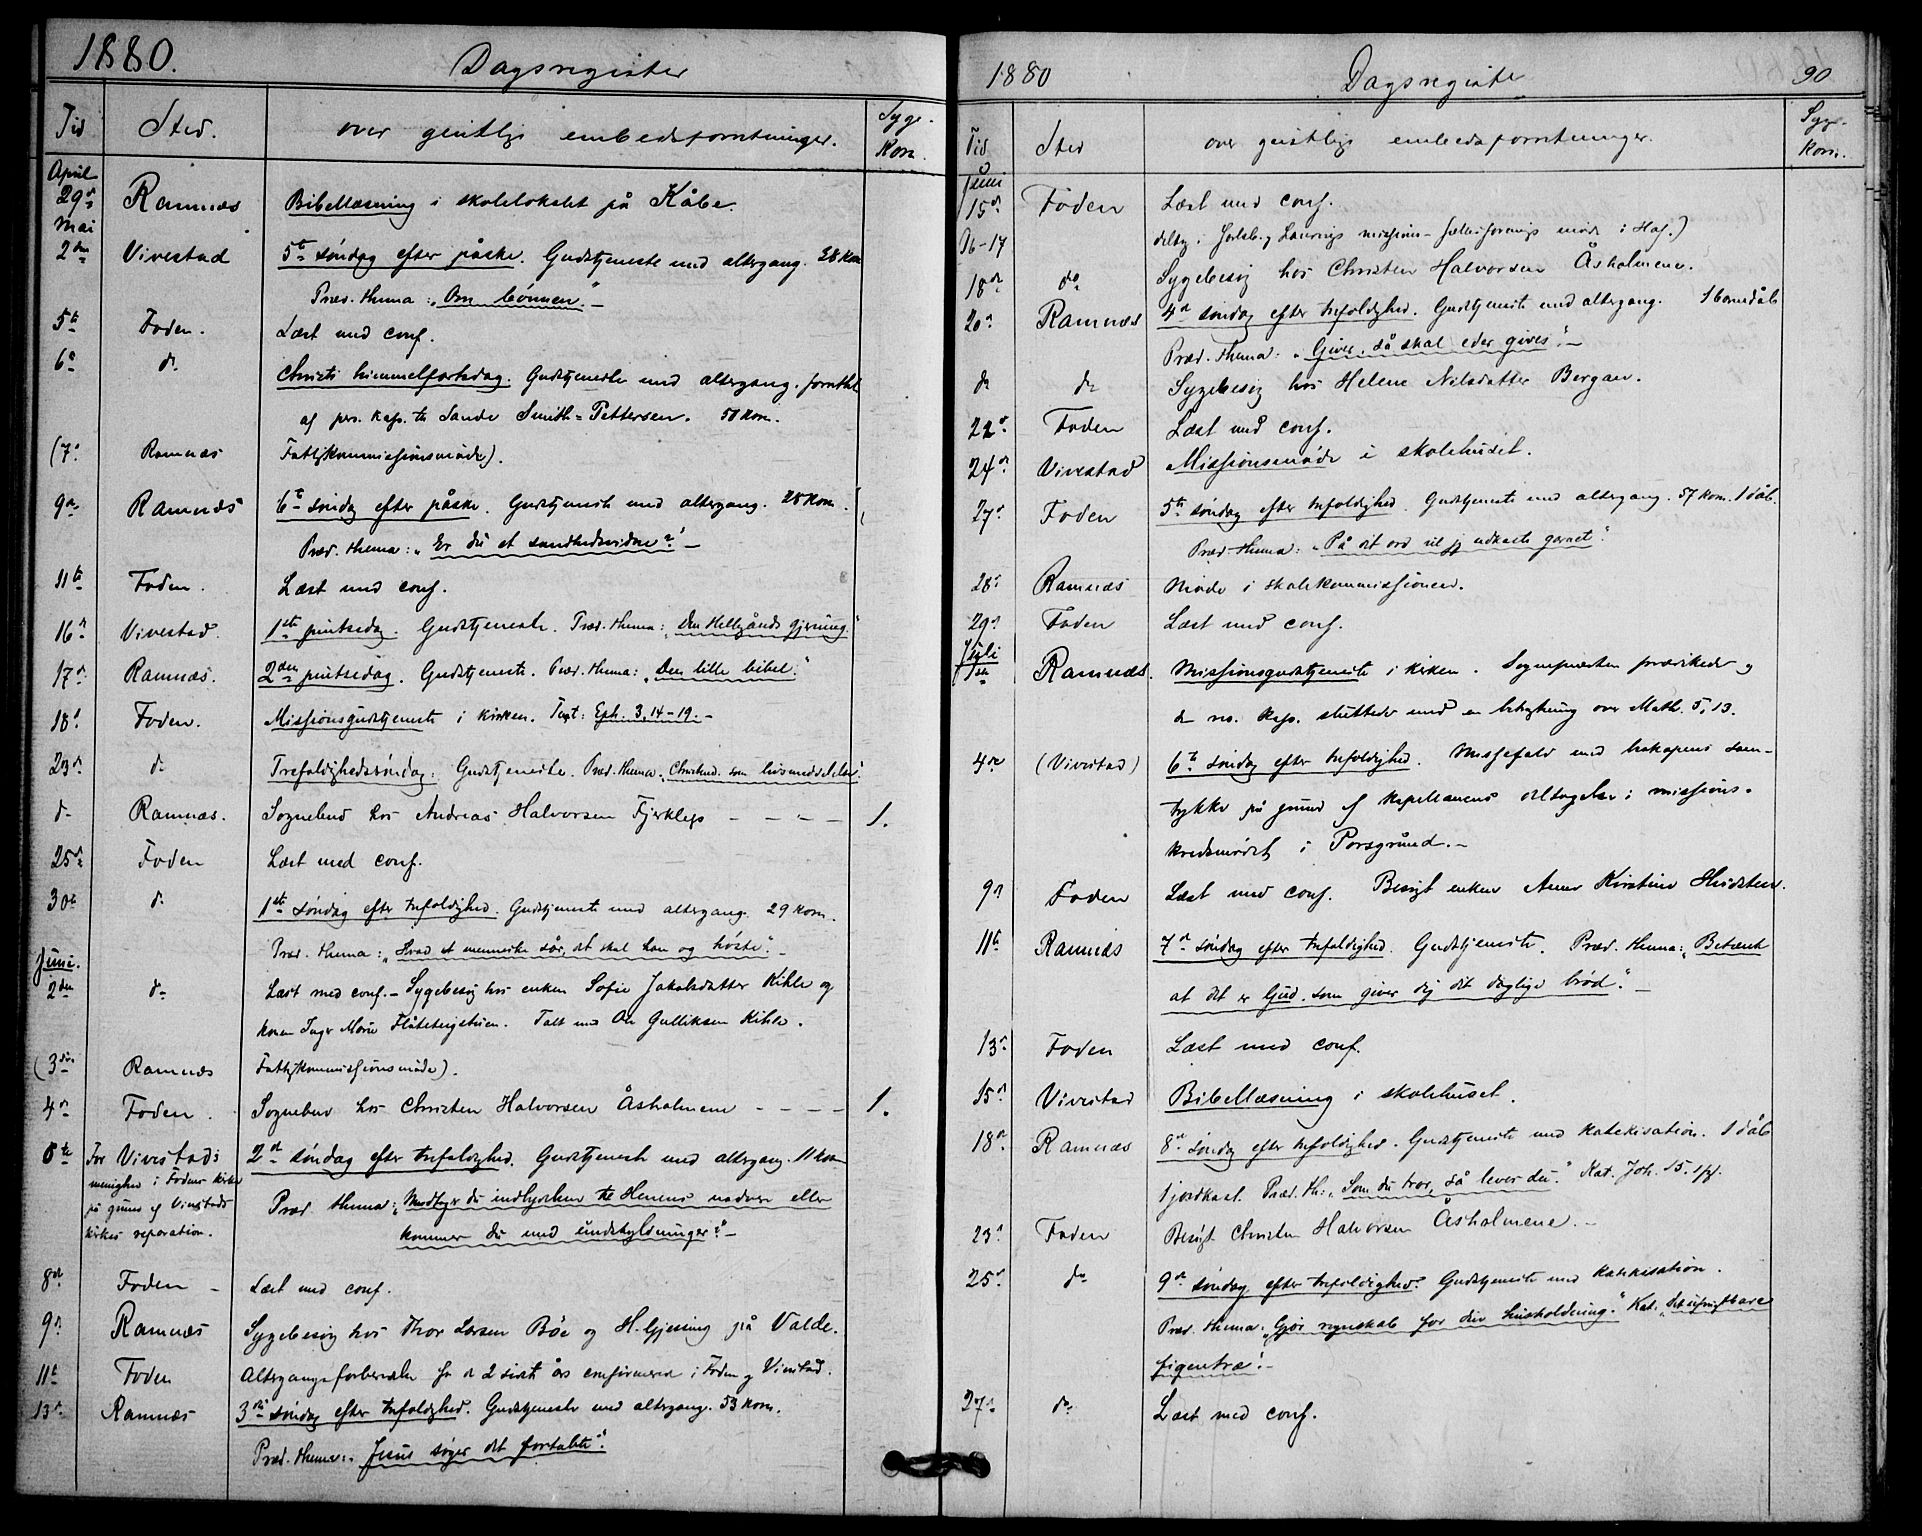 1880.
Dagsregister
Tid Sted. over geistlige embedsforretninger. Syge-
Kom.
April
29de Ramnæs Bibellæsning i skolelokalet på Kåbe.
Mai
2den Vivestad 5te søndag efter påske. Gudstjeneste med altergang. 28 kom
Præd. thema: "Om bønnen." –
5te Foden. Læst med conf.
6te do Christi himmelfartsdag. Gudstjeneste med altergang. forrettet
af pers. kap. til Sande Smith-Pettersen. 50 kom.
(7de Ramnæs Fattigkommissionsmøde).
9de Ramnæs 6te søndag efter påske. Gudstjeneste med altergang. 28 kom.
Præd. thema: "Er du et sandhedsvidne?" –
11te Foden. Læst med conf.
16de Vivestad. 1ste pintsedag. Gudstjeneste. Præd. thema: "Den Helligånds gjerning."
17de Ramnæs. 2den pintsedag. Gudstjeneste. Præd. thema: "Den lille bibel."
18de Foden. Missionsgudstjeneste i kirken. Text: Eph. 3, 14-19. –
23de do Trefoldighedssøndag. Gudstjeneste. Præd. thema:
do Ramnæs. Sognebud hos Andreas Halvorsen Fjerklep – – – – 1.
25de Foden Læst med conf.
30te do 1ste søndag efter trefoldighed. Gudstjeneste med altergang. 29 kom.
Præd. thema: "Hvad et menneske sår, det skal han og høste." –
Juni.
2den do Læst med conf. – Sygebesøg hos enken Sofie Jakobsdatter Kihle og
konen Inger Marie Flåteteigstuen. Talt med Ole Gulliksen Kihle.
(3die Ramnæs Fattigkommissionsmøde).
4de Foden. Sognebud hos Christen Halvorsen Åsholmene – – – – 1.
6te For Vivestads 2den søndag efter trefoldighed. Gudstjeneste med altergang. 11 kom
menighed i Fodens kirke
på grund af Vivestads Præd. thema: "Modtager du indbydelsen til Herrens nadvere eller
kirkes reparation. kommer du med undskyldninger?" –
8de Foden – Læst med conf.
9de Ramnæs Sygebesøg hos Thor Larsen Böe og H. Gjessing på Valde.
11te Foden Altergangsforberedelse for de 2 sidste års confirmerede i Foden og Vivestad.
13de Ramnæs 3die søndag efter trefoldighed. Gudstjeneste med altergang. 53 kom.
Præd. thema: "Jesus søger det fortabte."
1880 Dagsregister 90
Tid Sted over geistlige embedsforretninger. Syge-
kom.
Juni
15de Foden Læst med conf.
(16-17 deltog i Jarlsberg Laurvigs missions-fællesforenings møde i Hof.)
18de do Sygebesøg hos Christen Halvorsen Åsholmene.
20de Ramnæs 4de søndag efter trefoldighed. Gudstjeneste med altergang. 1 barnedåb
Præd. thema: "Giver, så skal eder gives." –
do do Sygebesøg hos Helene Nilsdatter Bergan.
22de Foden Læst med conf.
24de Vivestad Missionsmøde i skolehuset.
27de Foden 5te søndag efter trefoldighed. Gudstjeneste med altergang. 57 kom. 1 dåb.
Præd. thema: "På dit ord vil jeg udkaste garnet."
28de Ramnæs Møde i skolekommissionen.
29de Foden Læst med conf.
Juli
1ste Ramnæs. Missionsgudstjeneste i kirken. Sognepræsten prædikede og
de res. kap. sluttede med en betragtning over Math. 5, 13.
4de (Vivestad) 6te søndag efter trefoldighed. Messefald med biskopens sam-
tykke på grund af kapellanens deltagelse i missions-
kredsmødet i Porsgrund. –
9de Foden Læst med conf. Besøgt enken Anne Kirstine Hvidsten.
11te Ramnæs 7de søndag efter trefoldighed. Gudstjeneste. Præd. thema: "Betænk
at det er Gud, som giver dig dit daglige brød." –
13de Foden Læst med conf.
15de Vivestad Bibellæsning i skolehuset.
18de Ramnæs 8de søndag efter trefoldighed. Gudstjeneste med katekisation. 1 dåb
1 jordkast. Præd. th.: "Som du tror, så lever du." Kat. Joh. 15, 1 ff.
23de Foden Besøgt Christen Halvorsen Åsholmene. –
25de do 9de søndag efter trefoldighed. Gudstjeneste med katekisation.
Præd. thema: "Gjør regnskab for din husholdning." Kat. "Det ufrugtbare
figentræ." –
27de do Læst med conf.